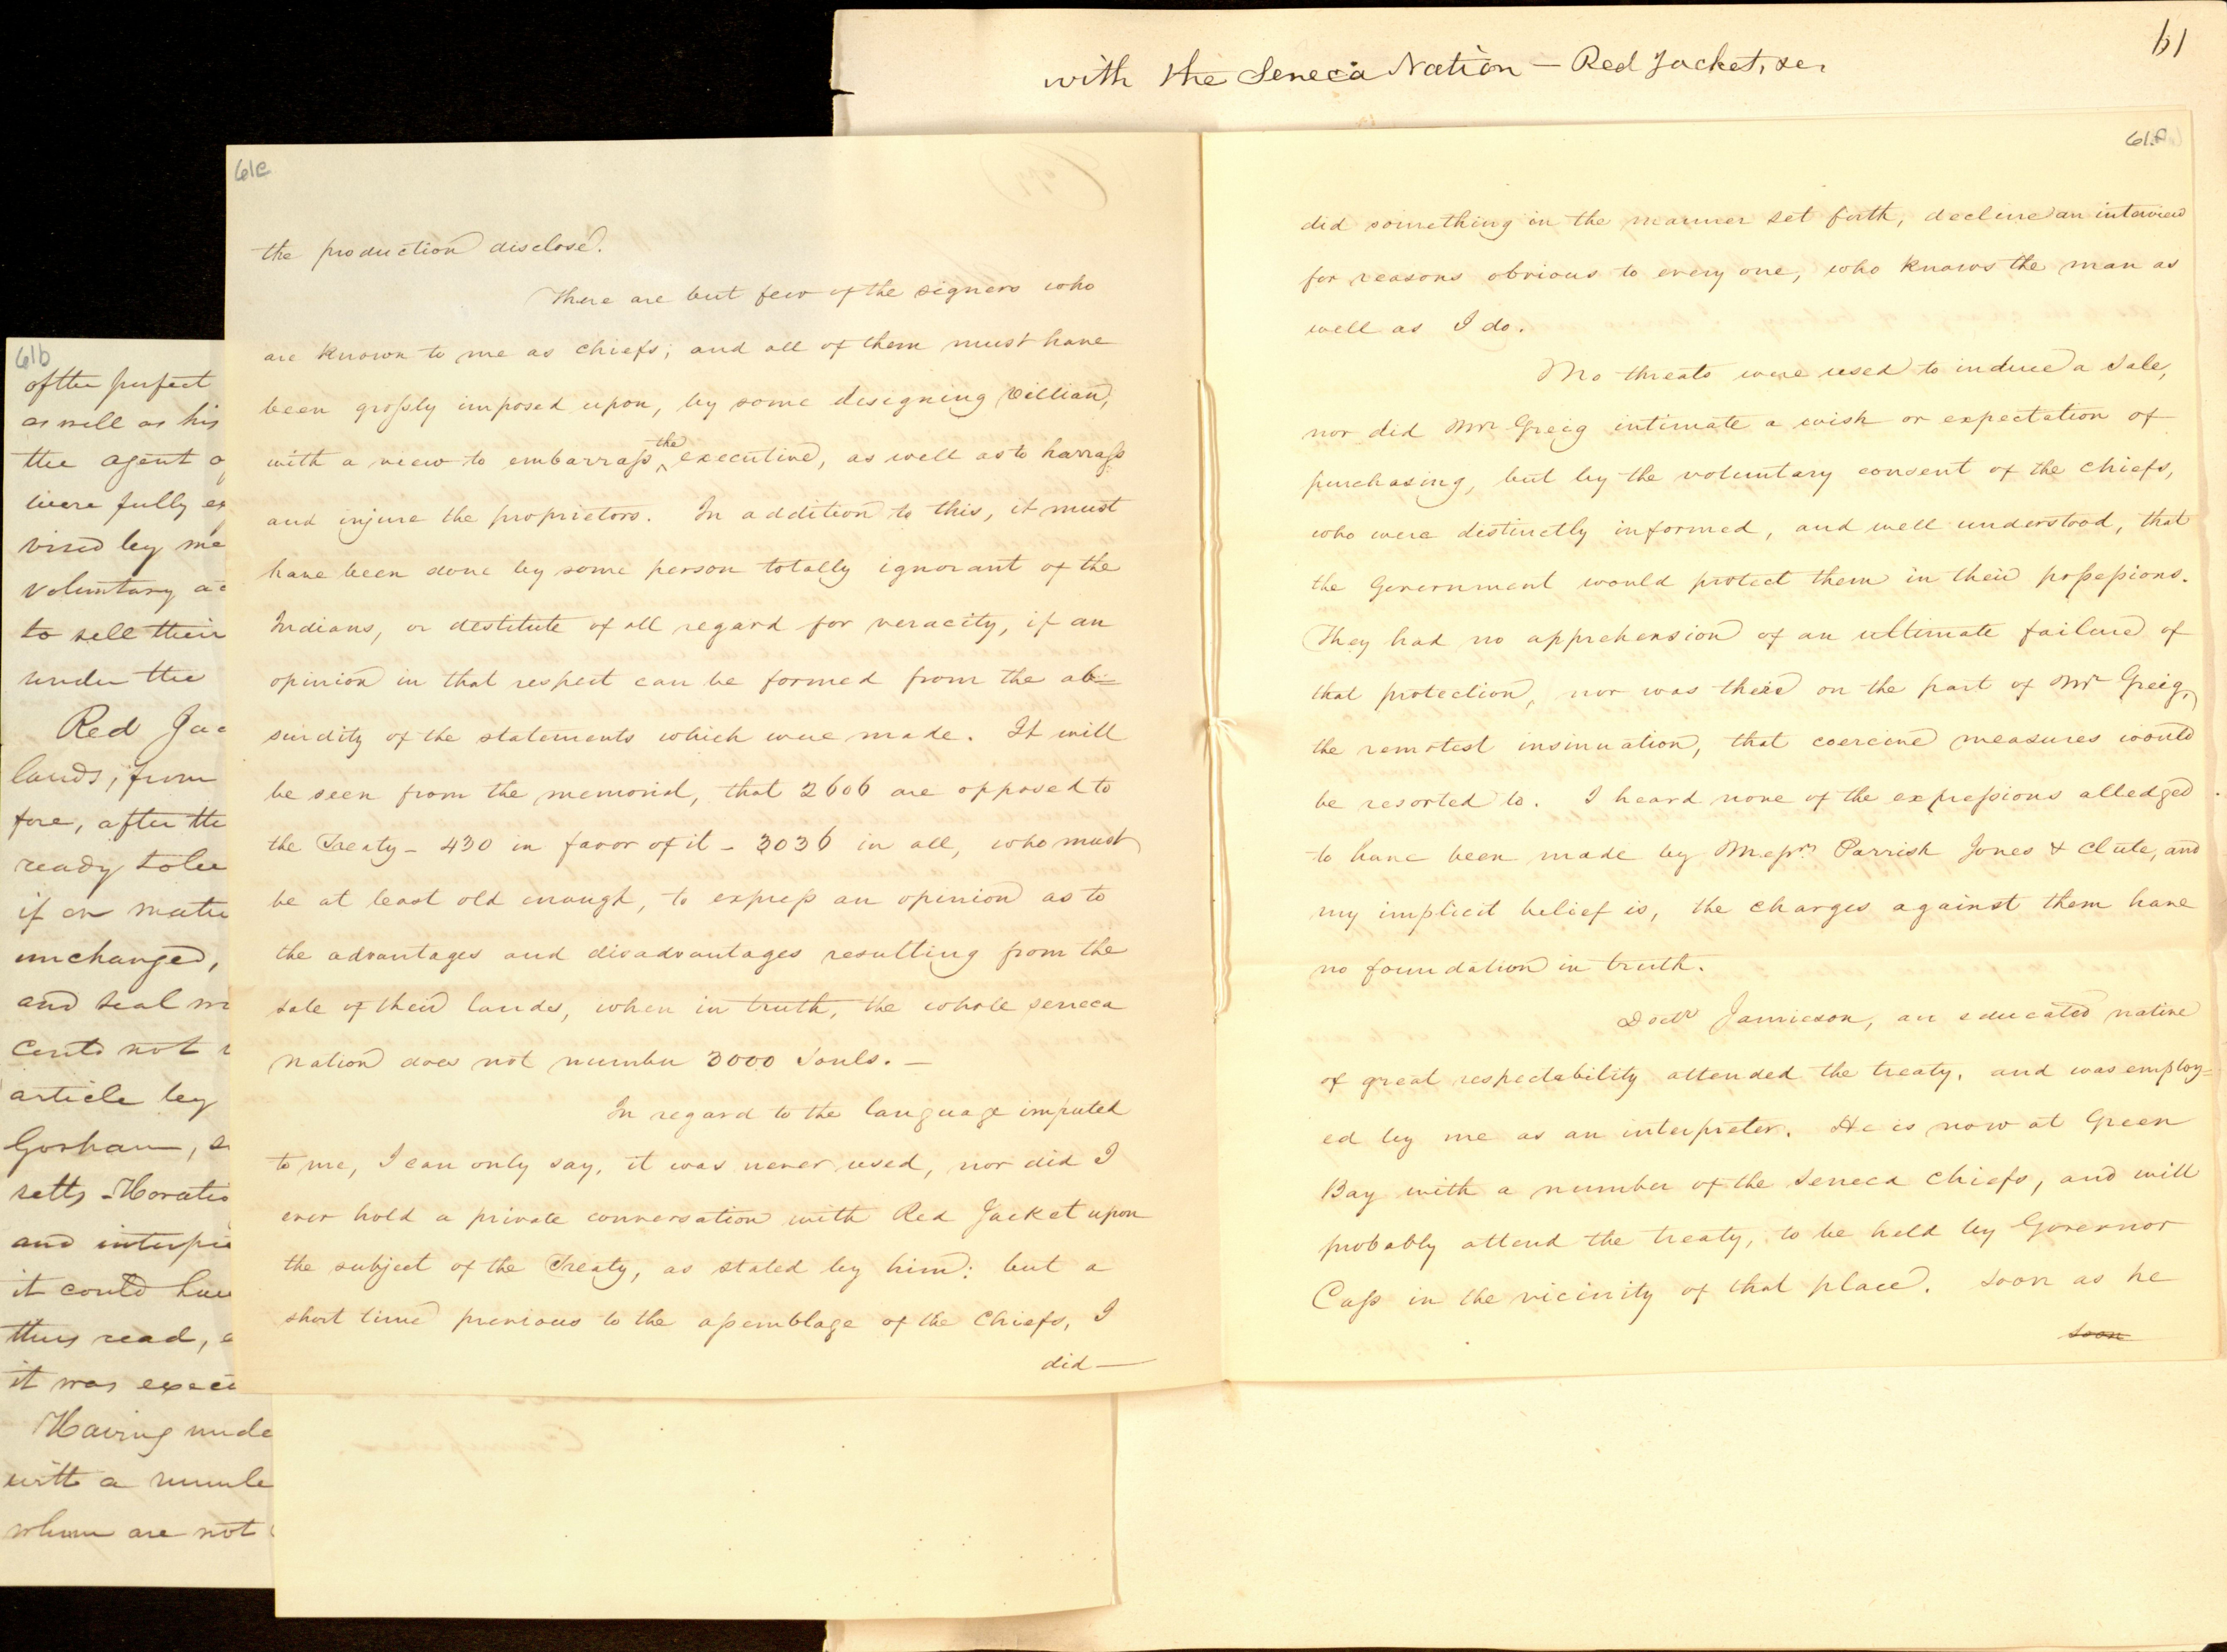 with the Seneca Nation — Red Jacket, &c.
61
61b
of the perfect
as well as his
the agent o
were fully ex
vised by me
voluntary ac
to sell their
under the
Red Jac
lands, from
fore, after the
ready to be
if on matu
unchanged,
and seal m
cents not
article by
Gorham, s
setts - Horatio
and interpre
it could hav
thus read, a
it was exec
Having unde
with a numbe
whom are not
61e
the production disclose.
There are but few of the signers who
are known to me as chiefs; and all of them must have
been grossly imposed upon, by some designing villian,
with a view to embarrass the executive, as well as to harrass
and injure the proprietors. In addition to this, it must
have been done by some person totally ignorant of the
Indians, or destitute of all regard for veracity, if an
opinion in that respect can be formed from the ab=
surdity of the statements which were made. It will
be seen from the memorial, that 2606 are opposed to
the Treaty - 430 in favor of it - 3036 in all, who must
be at least old enough, to express an opinion as to
the advantages and disadvantages resulting from the
sale of their landes, when in truth, the whole seneca
nation does not number 3000 Souls. —
In regard to the language imputed
to me, I can only say, it was never used, nor did I
ever hold a private conversation with Red Jacket upon
the subject of the Treaty, as stated by him: but a
short time previous to the assemblage of the Chiefs, I
did —
61f
did something in the manner set forth, decline an interview
for reasons obvious to every one, who knows the man as
well as I do.
No threats were used to induce a Sale,
nor did Mr Greig intimate a wish or expectation of
purchasing, but by the voluntary consent of the chiefs,
who were distinctly informed, and well understood, that
the Government would protect them in their possessions.
They had no apprehension of an ultimate failure of
that protection, nor was there on the part of Mr Greig,
the remotest insinuation, that coercive measures would
be resorted to. I heard none of the expressions alledged
to have been made by Messrs Parrish Jones & Clute, and
my implicit belief is, the charges against them have
no foundation in truth.
Doctr Jamieson, an educated native
of great respectability attended the treaty, and was employ=
ed by me as an interpreter. He is now at Green
Bay with a number of the Seneca Chiefs, and will
probably attend the treaty, to be held by Governor
Cass in the vicinity of that place. Soon as he
soon